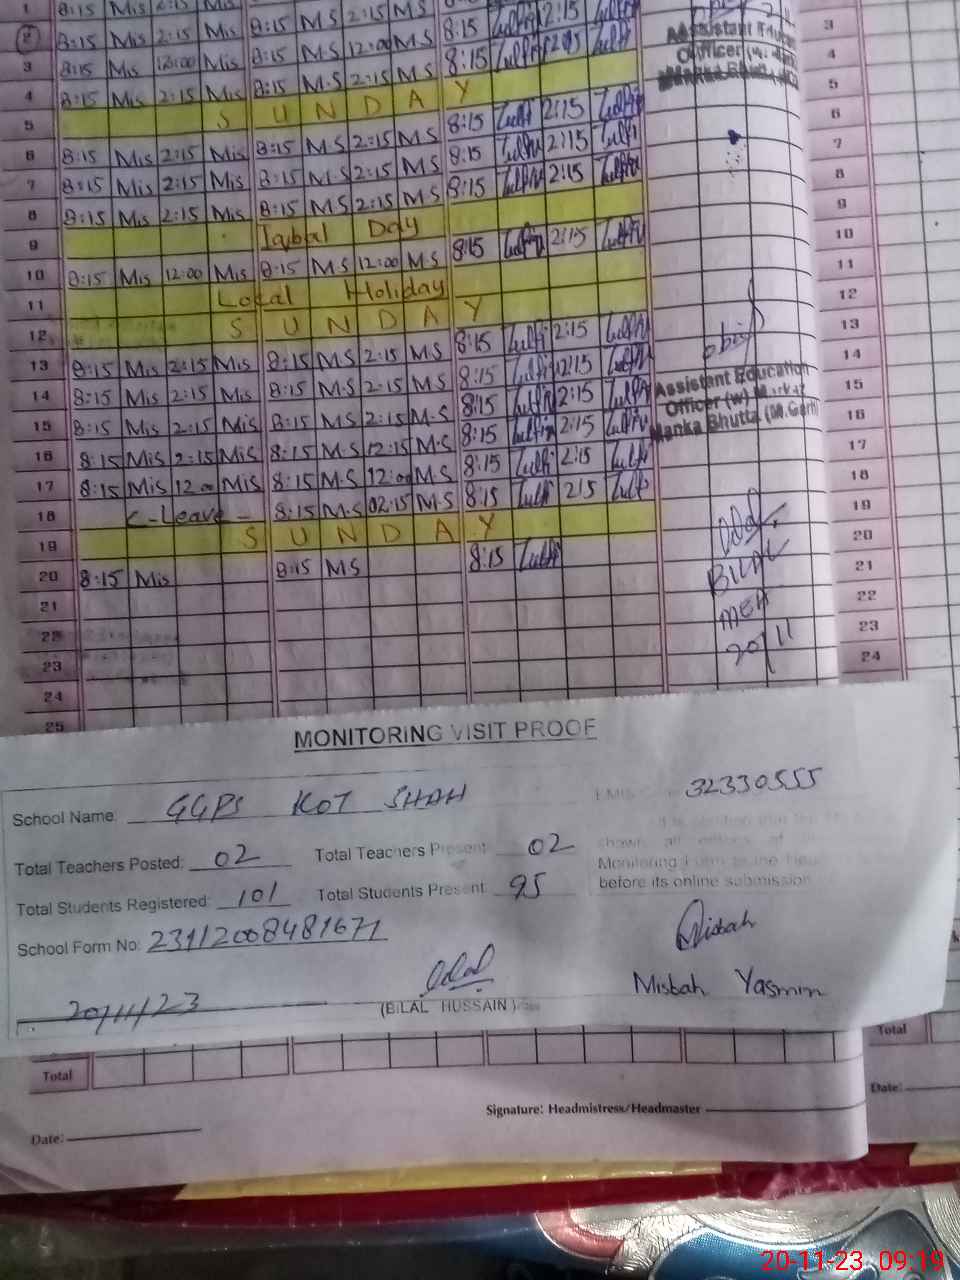 1 8:15 Mis 2:15 Mis 8:15 M.S 2:15 M.S 8:15 2:15 3
2 8:15 Mis 2:15 Mis 8:15 M.S 12:00 M.S 8:15 4
3 8:15 Mis 12:00 Mis 8:15 M.S 2:15 M.S 8:15
4 8:15 Mis 2:15 Mis 5
5 S U N D A Y 6
6 8:15 Mis 2:15 Mis 8:15 M.S 2:15 M.S 8:15 2:15 7
7 8:15 Mis 2:15 Mis 8:15 M.S 2:15 M.S 8:15 2:15 8
8 8:15 Mis 2:15 Mis 8:15 M.S 2:15 M.S 8:15 2:15 9
9 Iqbal Day 10
10 8:15 Mis 12:00 Mis 8:15 M.S 12:00 M.S 8:15 2:15 11
11 Local Holiday 12
12 S U N D A Y 13
13 8:15 Mis 2:15 Mis 8:15 M.S 2:15 M.S 8:15 2:15 14
14 8:15 Mis 2:15 Mis 8:15 M.S 2:15 M.S 8:15 2:15 15
15 8:15 Mis 2:15 Mis 8:15 M.S 2:15 M.S 8:15 2:15 16
16 8:15 Mis 2:15 Mis 8:15 M.S 12:15 M.S 8:15 2:15 17
17 8:15 Mis 12:00 Mis 8:15 M.S 12:00 M.S 8:15 2:15 18
18 C-Leave - 8:15 M.S 02:15 M.S 8:15 215 19
19 S U N D A Y 20
20 8:15 Mis 8:15 MS 8:15 21
21 22
22 23
23 24
24
25
Assistant Education
Officer (w) Markaz
Manka Bhutta (M.Garh)
BILAL
MEA
20/11
MONITORING VISIT PROOF
School Name: GGPS KOT SHAH 32330555
Total Teachers Posted: 02 Total Teachers Present: 02
Monitoring Form to the
before its online submission
Total Students Registered: 101 Total Students Present: 95
School Form No: 23112008481671
Misbah
Misbah Yasmin
20/11/23 (BILAL HUSSAIN)
Total Total
Signature: Headmistress/Headmaster
Date: Date:
20-11-23 09:19